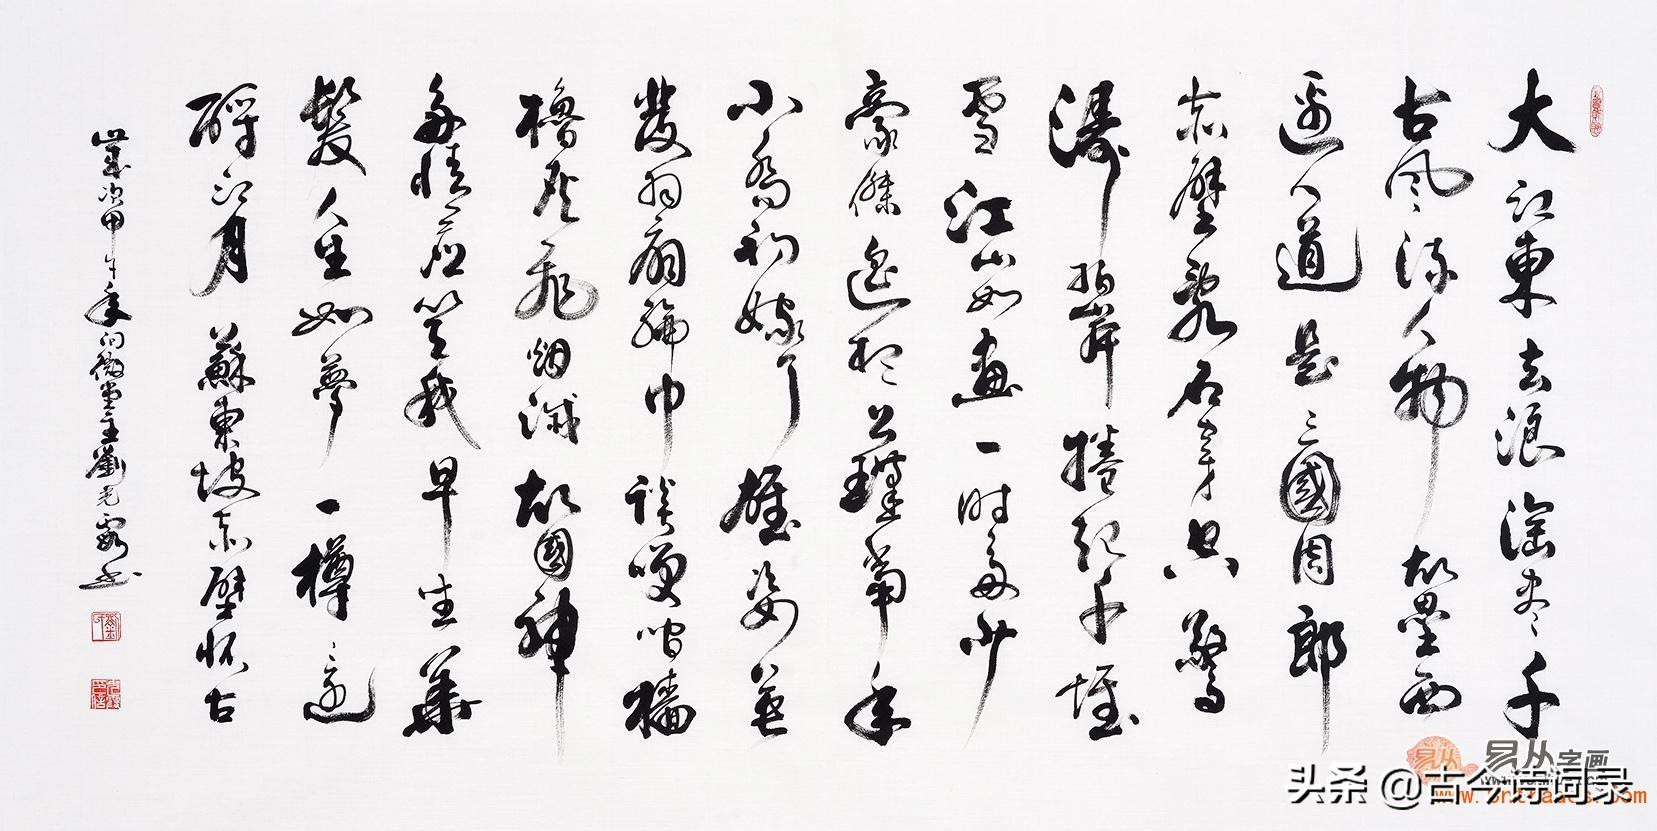 大江東去浪淘盡千
古風流人物故壘西
邊人道是三國周郎
赤壁亂石穿空驚
濤拍岸捲起千堆
雪江山如畫一時多少
豪傑遙想公瑾當年
小喬初嫁了雄姿英
發羽扇綸巾談笑間檣
櫓灰飛烟滅故國神
多情應笑我早生華
髮人生如夢一樽還
酹江月 蘇東坡赤壁懷古
歲次甲午年問微堂主劉光霞書
易从字画
头条 @古今诗词录